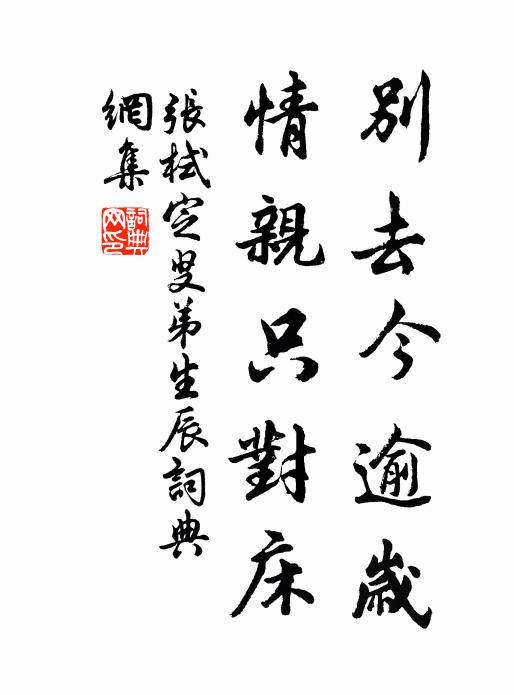 別去今逾歲
情親只對床
張栻定叟弟生辰詞典
網集
詞典網印